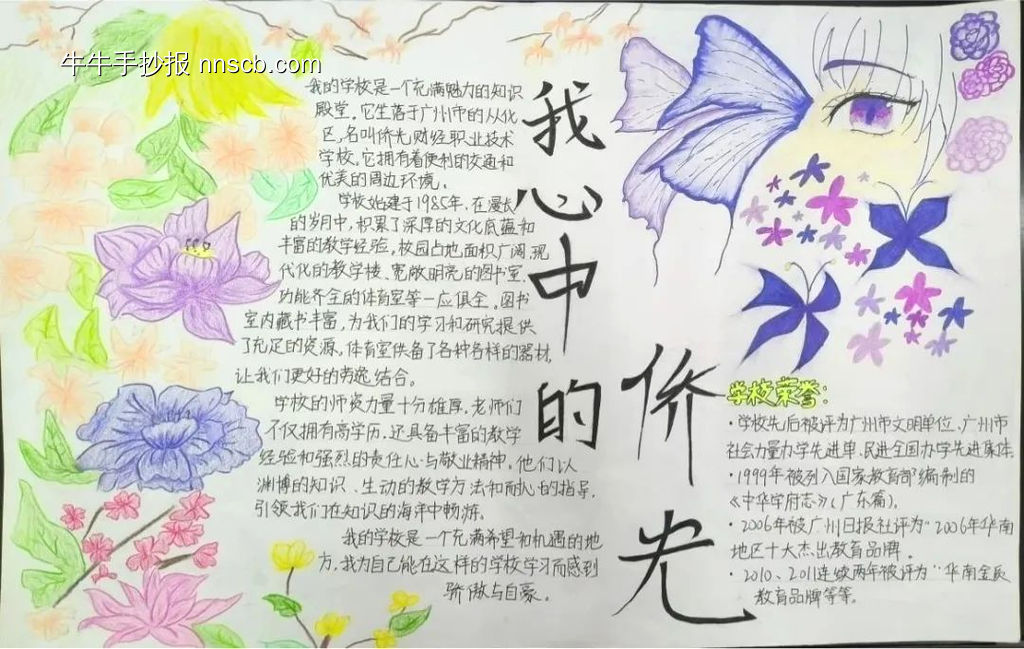 牛牛手抄报 nnscb.com
我的学校是一个充满魅力的知识
殿堂。它坐落于广州市的从化
区，名叫侨光财经职业技术
学校。它拥有着便利的交通和
优美的周边环境。
学校始建于1985年，在漫长
的岁月中，积累了深厚的文化底蕴和
丰富的教学经验。校园占地面积广阔，现
代化的教学楼、宽敞明亮的图书室、
功能齐全的体育室等一应俱全。图书
室内藏书丰富，为我们的学习和研究提供
了充足的资源，体育室供备了各种各样的器材，
让我们更好的劳逸结合。
学校的师资力量十分雄厚。老师们
不仅拥有高学历，还具备丰富的教学
经验和强烈的责任心与敬业精神。他们以
渊博的知识、生动的教学方法和耐心的指导，
引领我们在知识的海洋中畅游。
我的学校是一个充满希望和机遇的地
方，我为自己能在这样的学校学习而感到
骄傲与自豪。
我心中的
侨光
学校荣誉：
·学校先后被评为广州市文明单位、广州市
社会力量办学先进单、民进全国办学先进集体。
·1999年被列入国家教育部编制的
《中华学府志》（广东篇）。
·2006年被广州日报社评为“2006年华南
地区十大杰出教育品牌。
·2010、2011连续两年被评为“华南金质
教育品牌等等。